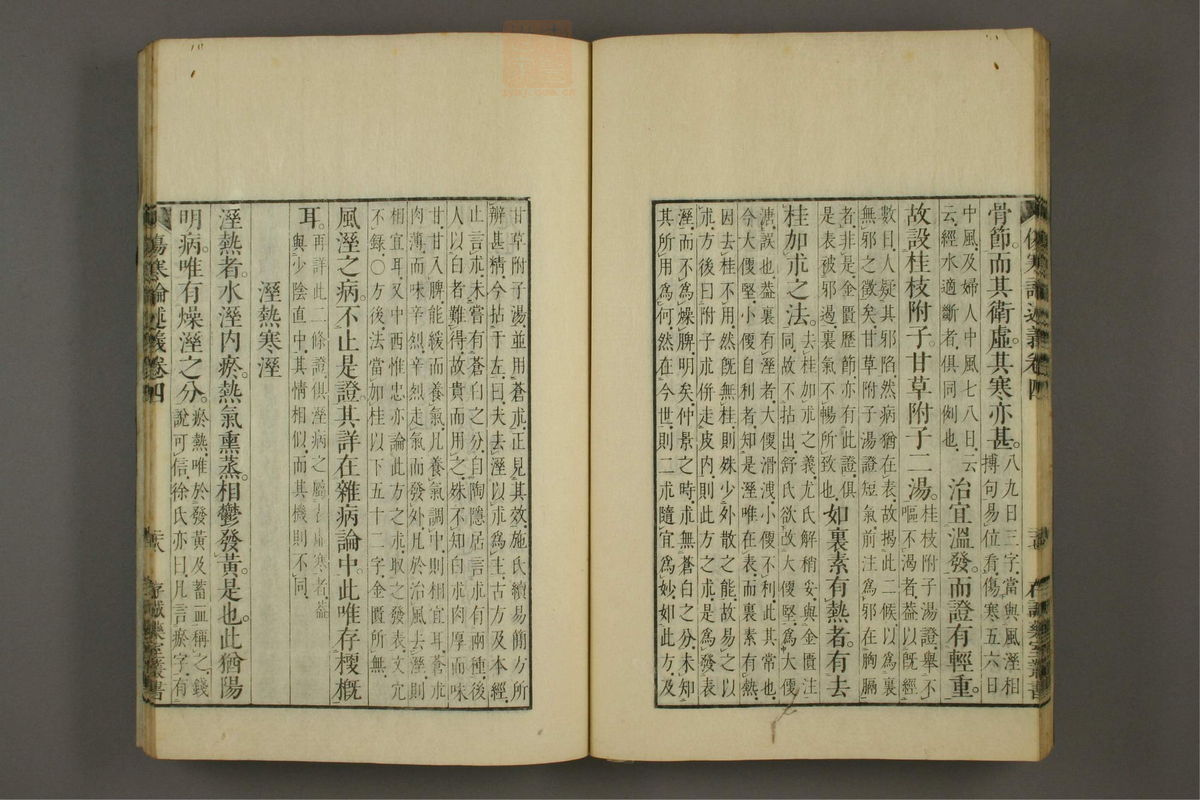 傷寒論述義卷四
存誠藥室叢書
骨節。而其衛虛。其寒亦甚。八九日三字。當與風溼相
搏句易位看。傷寒五六日
中風。及婦人中風七八日云
云。經水適斷者。俱同例也。治宜溫發。而證有輕重。
故設桂枝附子。甘草附子二湯。桂枝附子湯證。舉不
嘔不渴者。蓋以旣經
數日。人疑其邪陷。然病猶在表。故揭此二候。以爲裏
無邪之徵矣。甘草附子湯證。短氣。前注爲邪在胸膈
者非。是金匱歷節亦有此證。俱
是表被邪遏。裏氣不暢所致也。如裏素有熱者。有去
桂加朮之法。去桂加朮之義。尤氏解稍妥。與金匱注
同。故不拈出。舒氏欲改大便堅。爲大便
溏。誤也。蓋裏有溼者。大便滑洩。小便不利。此其常也。
今大便堅。小便自利者。知是溼唯在表。而裏素有熱。
因去桂不用。然旣無桂。則殊少外散之能。故易之以
朮。方後曰。附子朮併走皮內。則此方之朮。是爲發表
溼。而不爲燥脾。明矣。仲景之時。朮無蒼白之分。未知
其所用爲何。然在今世。則二朮隨宜爲妙。如此方及
甘草附子湯。並用蒼朮。正見其效。施氏續易簡方所
辨甚精。今拈于左。曰。夫去溼以朮爲主。古方及本經
止言朮。未嘗有蒼白之分。自陶隱居言朮有兩種。後
人以白者難得。故貴而用之。殊不知白朮肉厚而味
甘。甘入脾。能緩而養氣。凡養氣調中。則相宜耳。蒼朮
肉薄而味辛烈。辛烈走氣而發外。凡於治風去溼。則
相宜耳。又中西惟忠亦論此方之朮。取之發表。文冗
不錄。○方後。法當加桂以下五十二字。金匱所無。
風溼之病。不止是證。其詳在雜病論中。此唯存梗概
耳。再詳此二條證。俱溼病之屬表虛寒者。蓋
與少陰直中。其情相似。而其機則不同。
溼熱寒溼
溼熱者。水溼內瘀。熱氣熏蒸。相鬱發黃。是也。此猶陽
明病。唯有燥溼之分。瘀熱。唯於發黃及蓄血稱之。錢
說可信。徐氏亦曰。凡言瘀字。有
傷寒論述義卷四
存誠藥室叢書